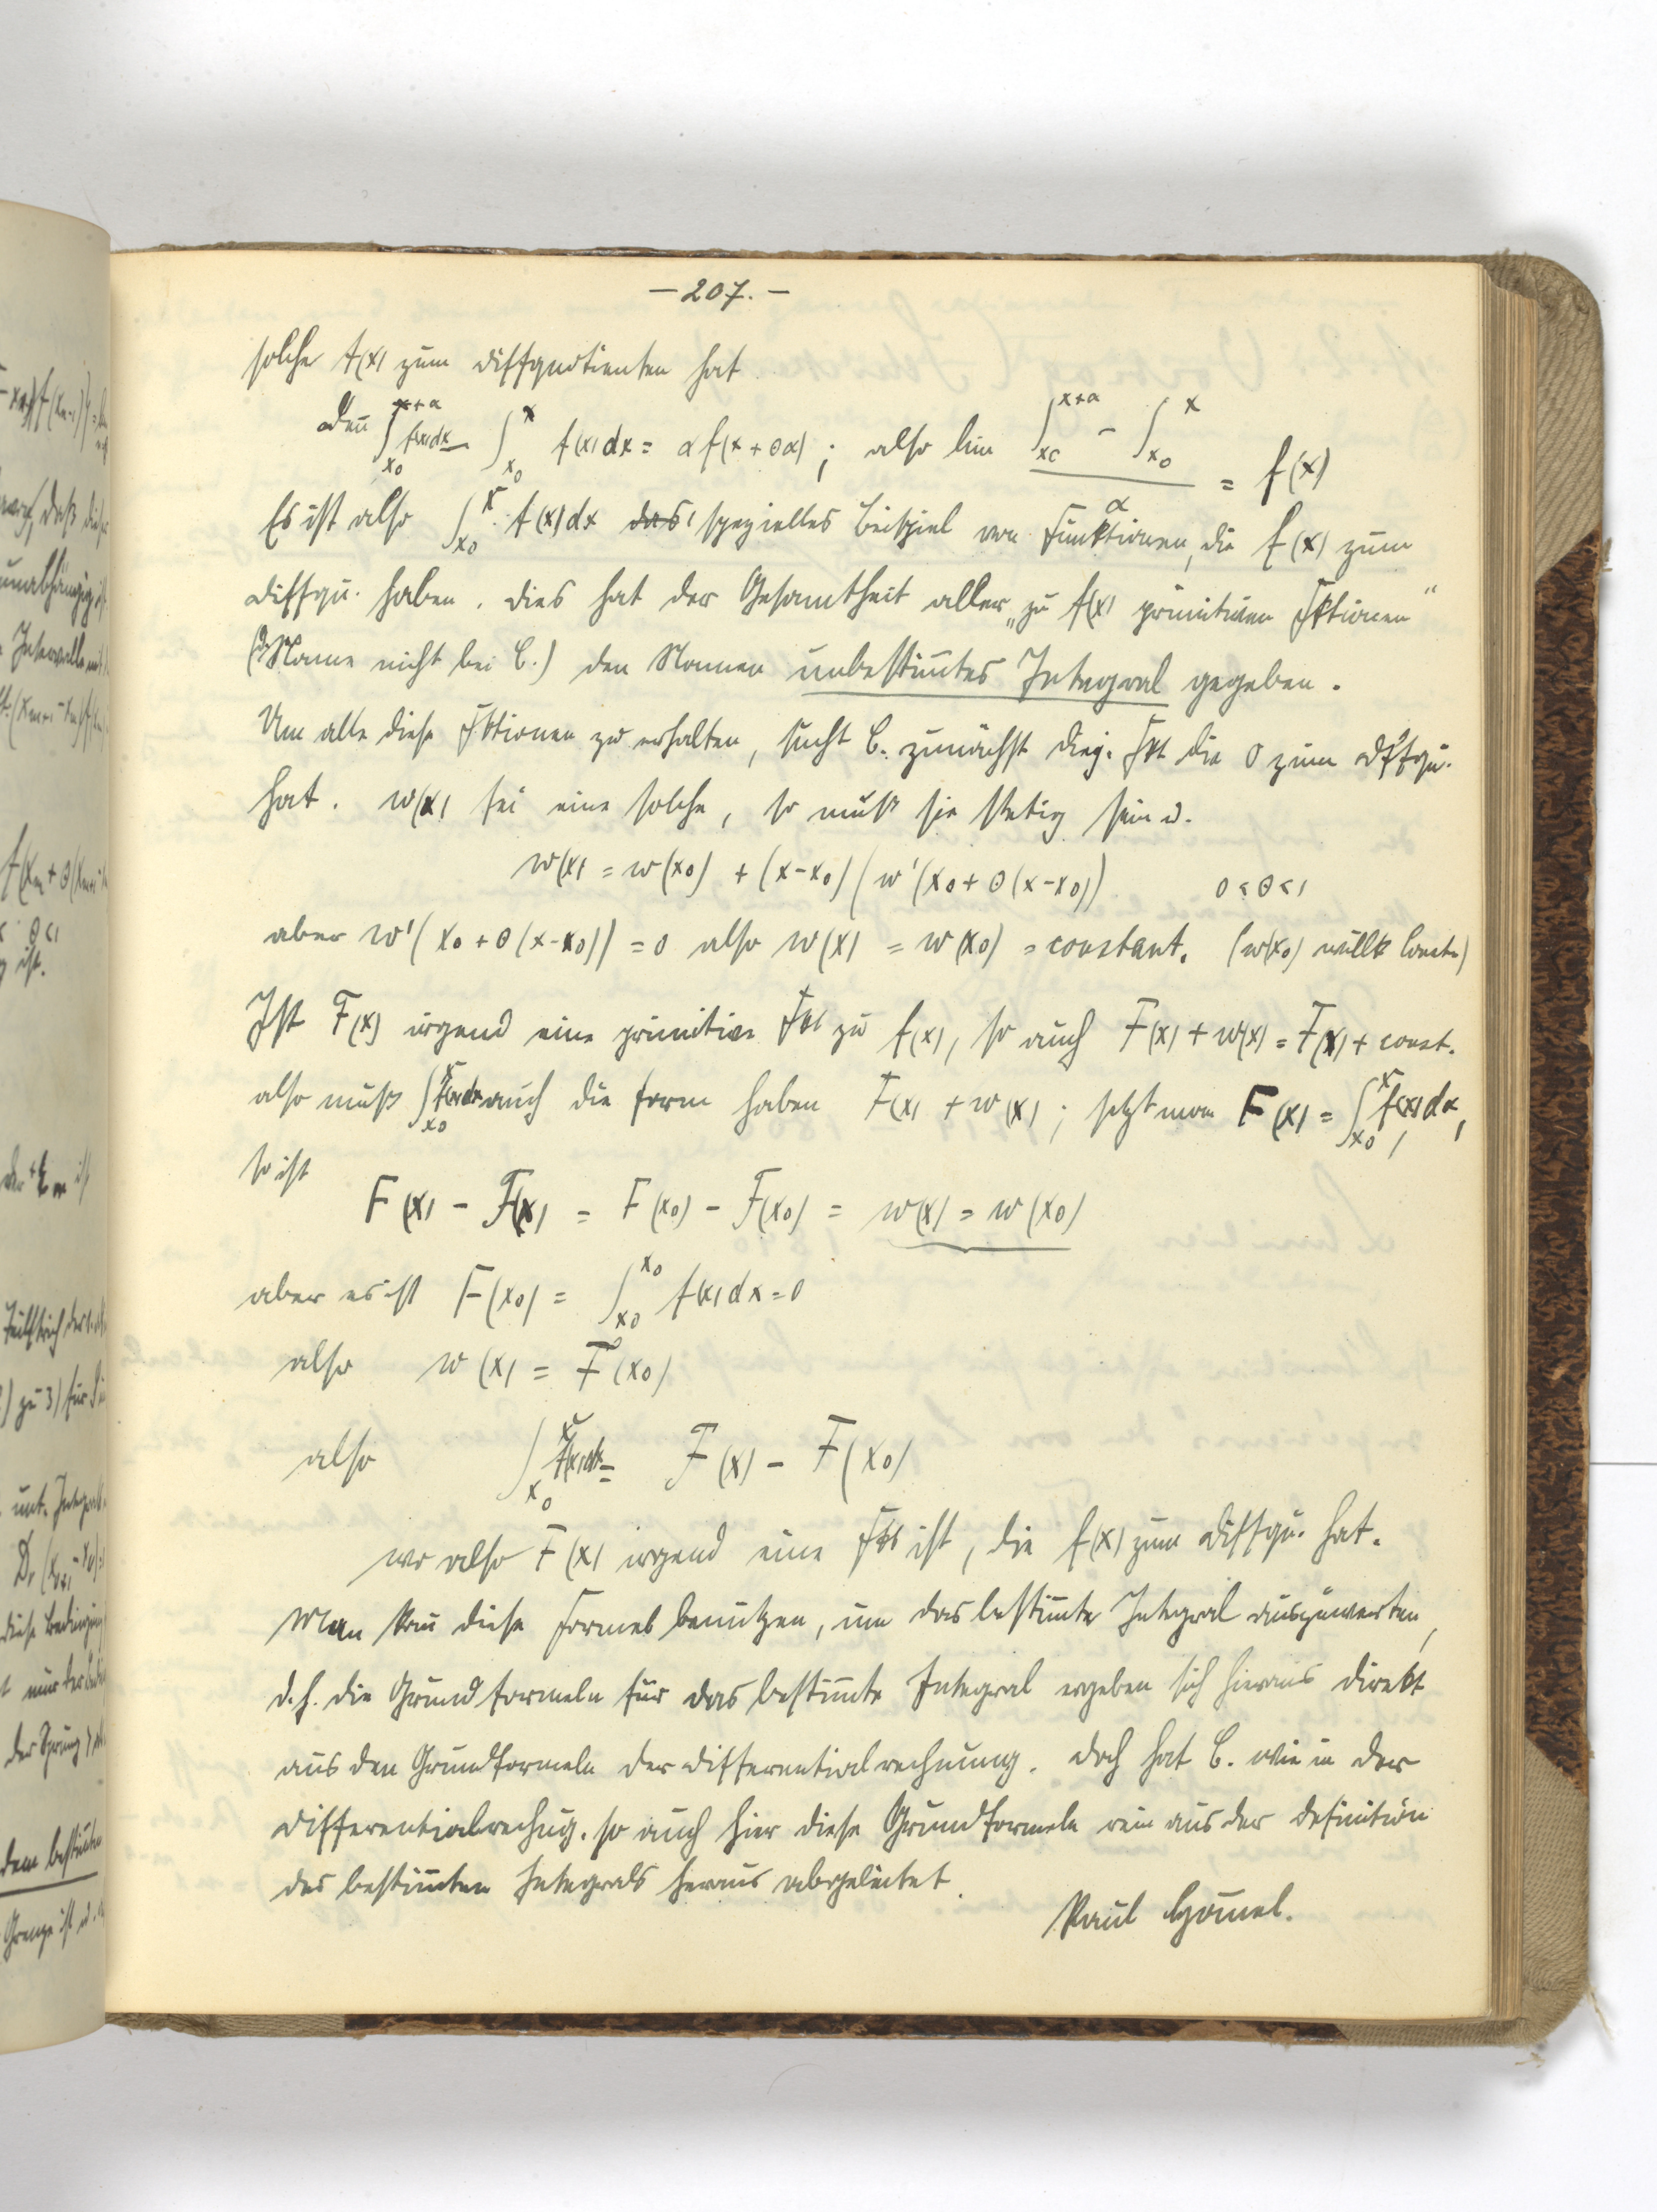 — 207. —
solche f(x) zum Diffquotienten hat
Den̄ ∫_{x0}^{x+α} f(x)dx − ∫_{x0}^{x} f(x)dx = α f(x+θα) ; also lim (∫_{x0}^{x+α} − ∫_{x0}^{x}) / α = f(x)
Es ist also ∫_{x0}^{x} f(x)dx spezielles Beispiel von Funktionen, die f(x) zum
Diffqu. haben. Dies hat der Gesamtheit aller „zu f(x) primitiven Fktionen“
(Name nicht bei C.) den Namen unbestim̄tes Integral gegeben.
Um alle diese Fktionen zu erhalten, sucht C. zunächst diej. Fkt die 0 zum Diffqu.
hat. w(x) sei eine solche, so muß sie stetig sein u.
w(x) = w(x0) + (x-x0)(w'(x0+θ(x-x0)) 0<θ<1
aber w'(x0+θ(x-x0)) = 0 also w(x) = w(x0) = constant. (w(x0) willk Const.)
Ist F(x) irgend eine primitive Fkt zu f(x), so auch F(x) + w(x) = F(x) + const.
also muß ∫_{x0}^{x} f(x)dx auch die Form haben F(x) + w(x) ; setzt man F(x) = ∫_{x0}^{x} f(x)dx,
so ist
F(x) − F(x) = F(x0) − F(x0) = w(x) = w(x0)
aber es ist F(x0) = ∫_{x0}^{x0} f(x)dx = 0
also w(x) = F(x0)
also ∫_{x0}^{x} f(x)dx = F(x) − F(x0)
wo also F(x) irgend eine Fkt ist, die f(x) zum Diffqu. hat.
Man kan̄ diese Formel benutzen, um das bestim̄te Integral auszuwerten,
d.h. die Grundformeln für das bestim̄te Integral ergeben sich hieraus direkt
aus den Grundformeln der Differentialrechnung. Doch hat C. wie in der
Differentialrechng. so auch hier diese Grundformeln rein aus der Definition
des bestim̄ten Integrals heraus abgeleitet.
Paul